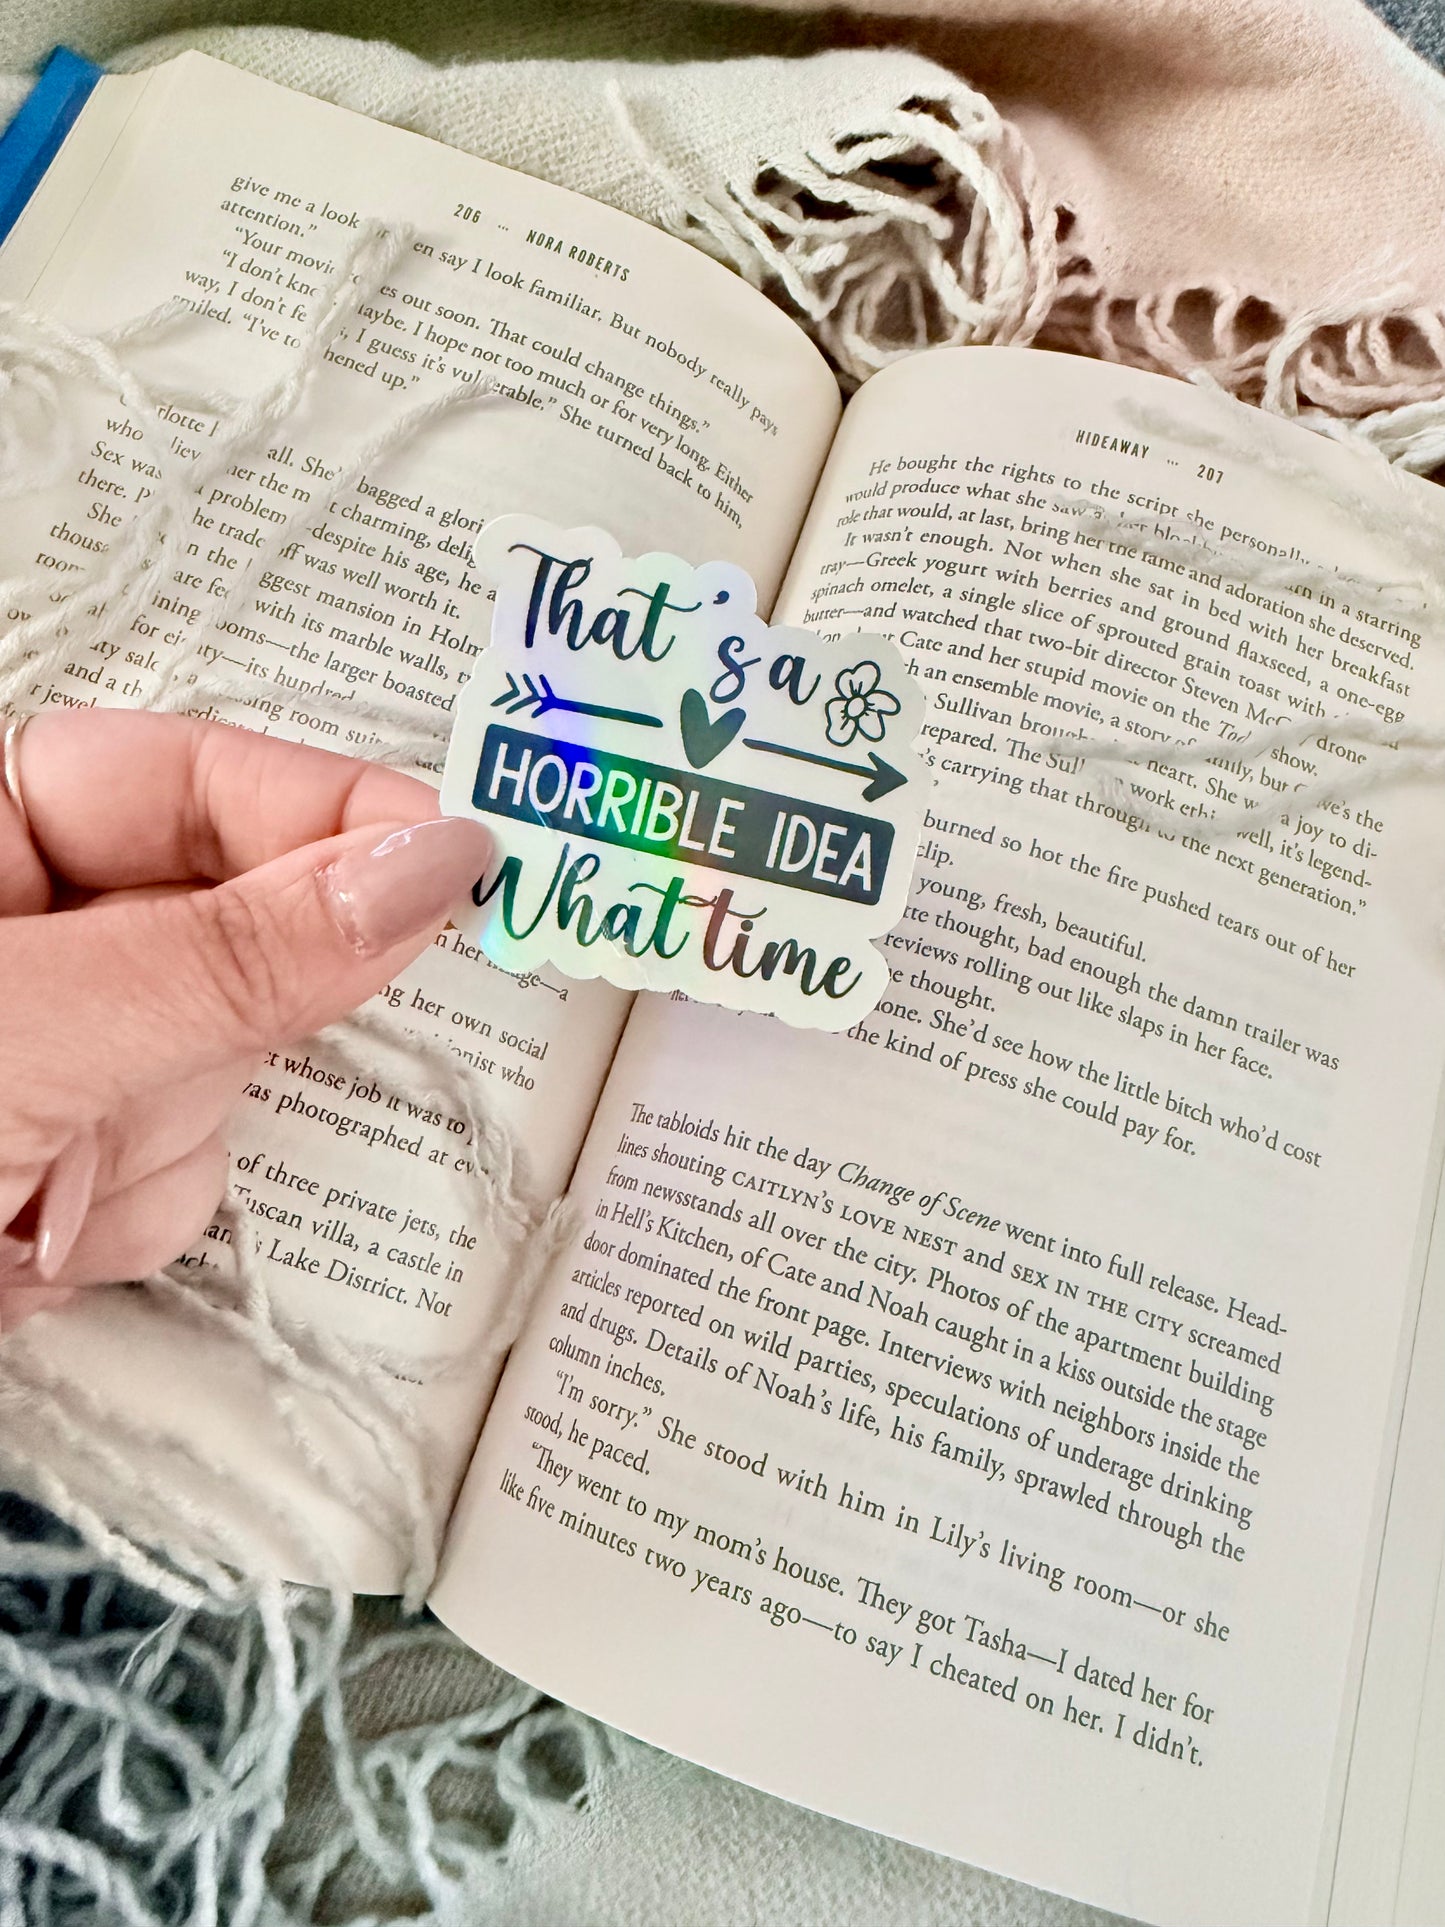 206 ... NORA ROBERTS
give me a look en say I look familiar. But nobody really pays
attention."
"Your movie es out soon. That could change things."
"I don't kno aybe. I hope not too much or for very long. Either
way, I don't fe , I guess it's vulnerable." She turned back to him,
smiled. "I've to hened up."
rlotte all. She' bagged a glori
who liev her the m t charming, delig
Sex was problem -despite his age, he a
there. P he trade off was well worth it.
She n the ggest mansion in Holm
thous are fee with its marble walls, t
room ining ooms—the larger boasted
for ei ty—its hundred
ty salo a ssing room suit
and a th
r jewel
n her image—a
ng her own social
ionist who
ct whose job it was to
was photographed at ev
of three private jets, the
Tuscan villa, a castle in
Lake District. Not
That's a
HORRIBLE IDEA
What time
HIDEAWAY ... 207
He bought the rights to the script she personally
would produce what she saw as her blockbu turn in a starring
role that would, at last, bring her the fame and adoration she deserved.
It wasn't enough. Not when she sat in bed with her breakfast
tray—Greek yogurt with berries and ground flaxseed, a one-egg
spinach omelet, a single slice of sprouted grain toast with
butter—and watched that two-bit director Steven McC drone
Cate and her stupid movie on the Today show.
h an ensemble movie, a story of family, but Cate's the
Sullivan brought heart. She was a joy to di-
repared. The Sul work ethic well, it's legend-
's carrying that through to the next generation."
burned so hot the fire pushed tears out of her
clip.
young, fresh, beautiful.
tte thought, bad enough the damn trailer was
reviews rolling out like slaps in her face.
e thought.
lone. She'd see how the little bitch who'd cost
the kind of press she could pay for.
The tabloids hit the day Change of Scene went into full release. Head-
lines shouting CAITLYN'S LOVE NEST and SEX IN THE CITY screamed
from newsstands all over the city. Photos of the apartment building
in Hell's Kitchen, of Cate and Noah caught in a kiss outside the stage
door dominated the front page. Interviews with neighbors inside the
articles reported on wild parties, speculations of underage drinking
and drugs. Details of Noah's life, his family, sprawled through the
column inches.
"I'm sorry." She stood with him in Lily's living room—or she
stood, he paced.
"They went to my mom's house. They got Tasha—I dated her for
like five minutes two years ago—to say I cheated on her. I didn't.